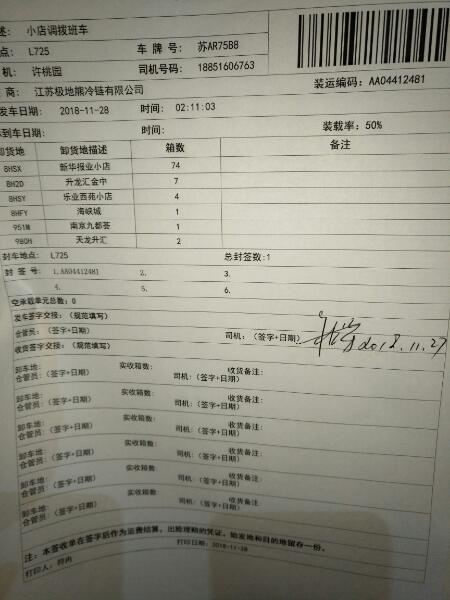 述: 小店调拨班车
点: L725 车 牌 号: 苏AR75B8
机: 许桃园 司机号码: 18851606763
商: 江苏极地熊冷链有限公司 装运编码: AA04412481
发车日期: 2018-11-28 时间: 02:11:03
到车日期: 时间: 装载率: 50%
卸货地 卸货地描述 箱数 备注
8HSX 新华报业小店 74
8H2D 升龙汇金中 7
8HSY 乐业西苑小店 4
8HFY 海峡城 1
951M 南京九都荟 1
980H 天龙升汇 2
封车地点: L725 总封签数:1
封 签 号: 1.AA04412481 2. 3.
4. 5. 6.
空承载单元总数: 0
发车签字交接: (规范填写)
仓管员: (签字+日期) 司机: (签字+日期) 2018.11.27
收货签字交接: (规范填写)
卸车地: 实收箱数: 收货备注:
仓管员: (签字+日期) 司机: (签字+日期)
卸车地: 实收箱数: 收货备注:
仓管员: (签字+日期) 司机: (签字+日期)
卸车地: 实收箱数: 收货备注:
仓管员: (签字+日期) 司机: (签字+日期)
卸车地: 实收箱数: 收货备注:
仓管员: (签字+日期) 司机: (签字+日期)
卸车地: 实收箱数: 收货备注:
仓管员: (签字+日期) 司机: (签字+日期)
注: 本签收单在签字后作为运费结算, 出险理赔的凭证, 始发地和目的地留存一份。
打印人: 打印日期: 2018-11-28